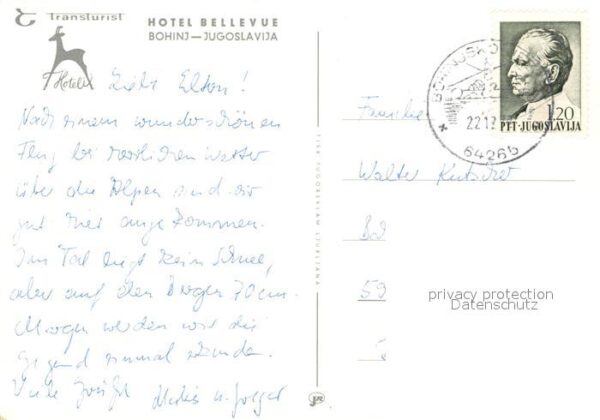 Transturist
HOTEL BELLEVUE
BOHINJ—JUGOSLAVIJA
Hoteli
Liebe Eltern!
Nach einem wunderschönen
Flug bei herrlichem Wetter
über die Alpen sind wir
gut hier angekommen.
Im Tal liegt kein Schnee,
aber auf den Bergen 70 cm.
Morgen werden wir die
Gegend einmal erkunden.
Viele Grüße
u. Holger
TISK JUGOREKLAM LJUBLJANA
BOHINJSKO
22.12
64265
1.20
PTT-JUGOSLAVIJA
Familie
Walter
Bad
59
privacy protection
Datenschutz